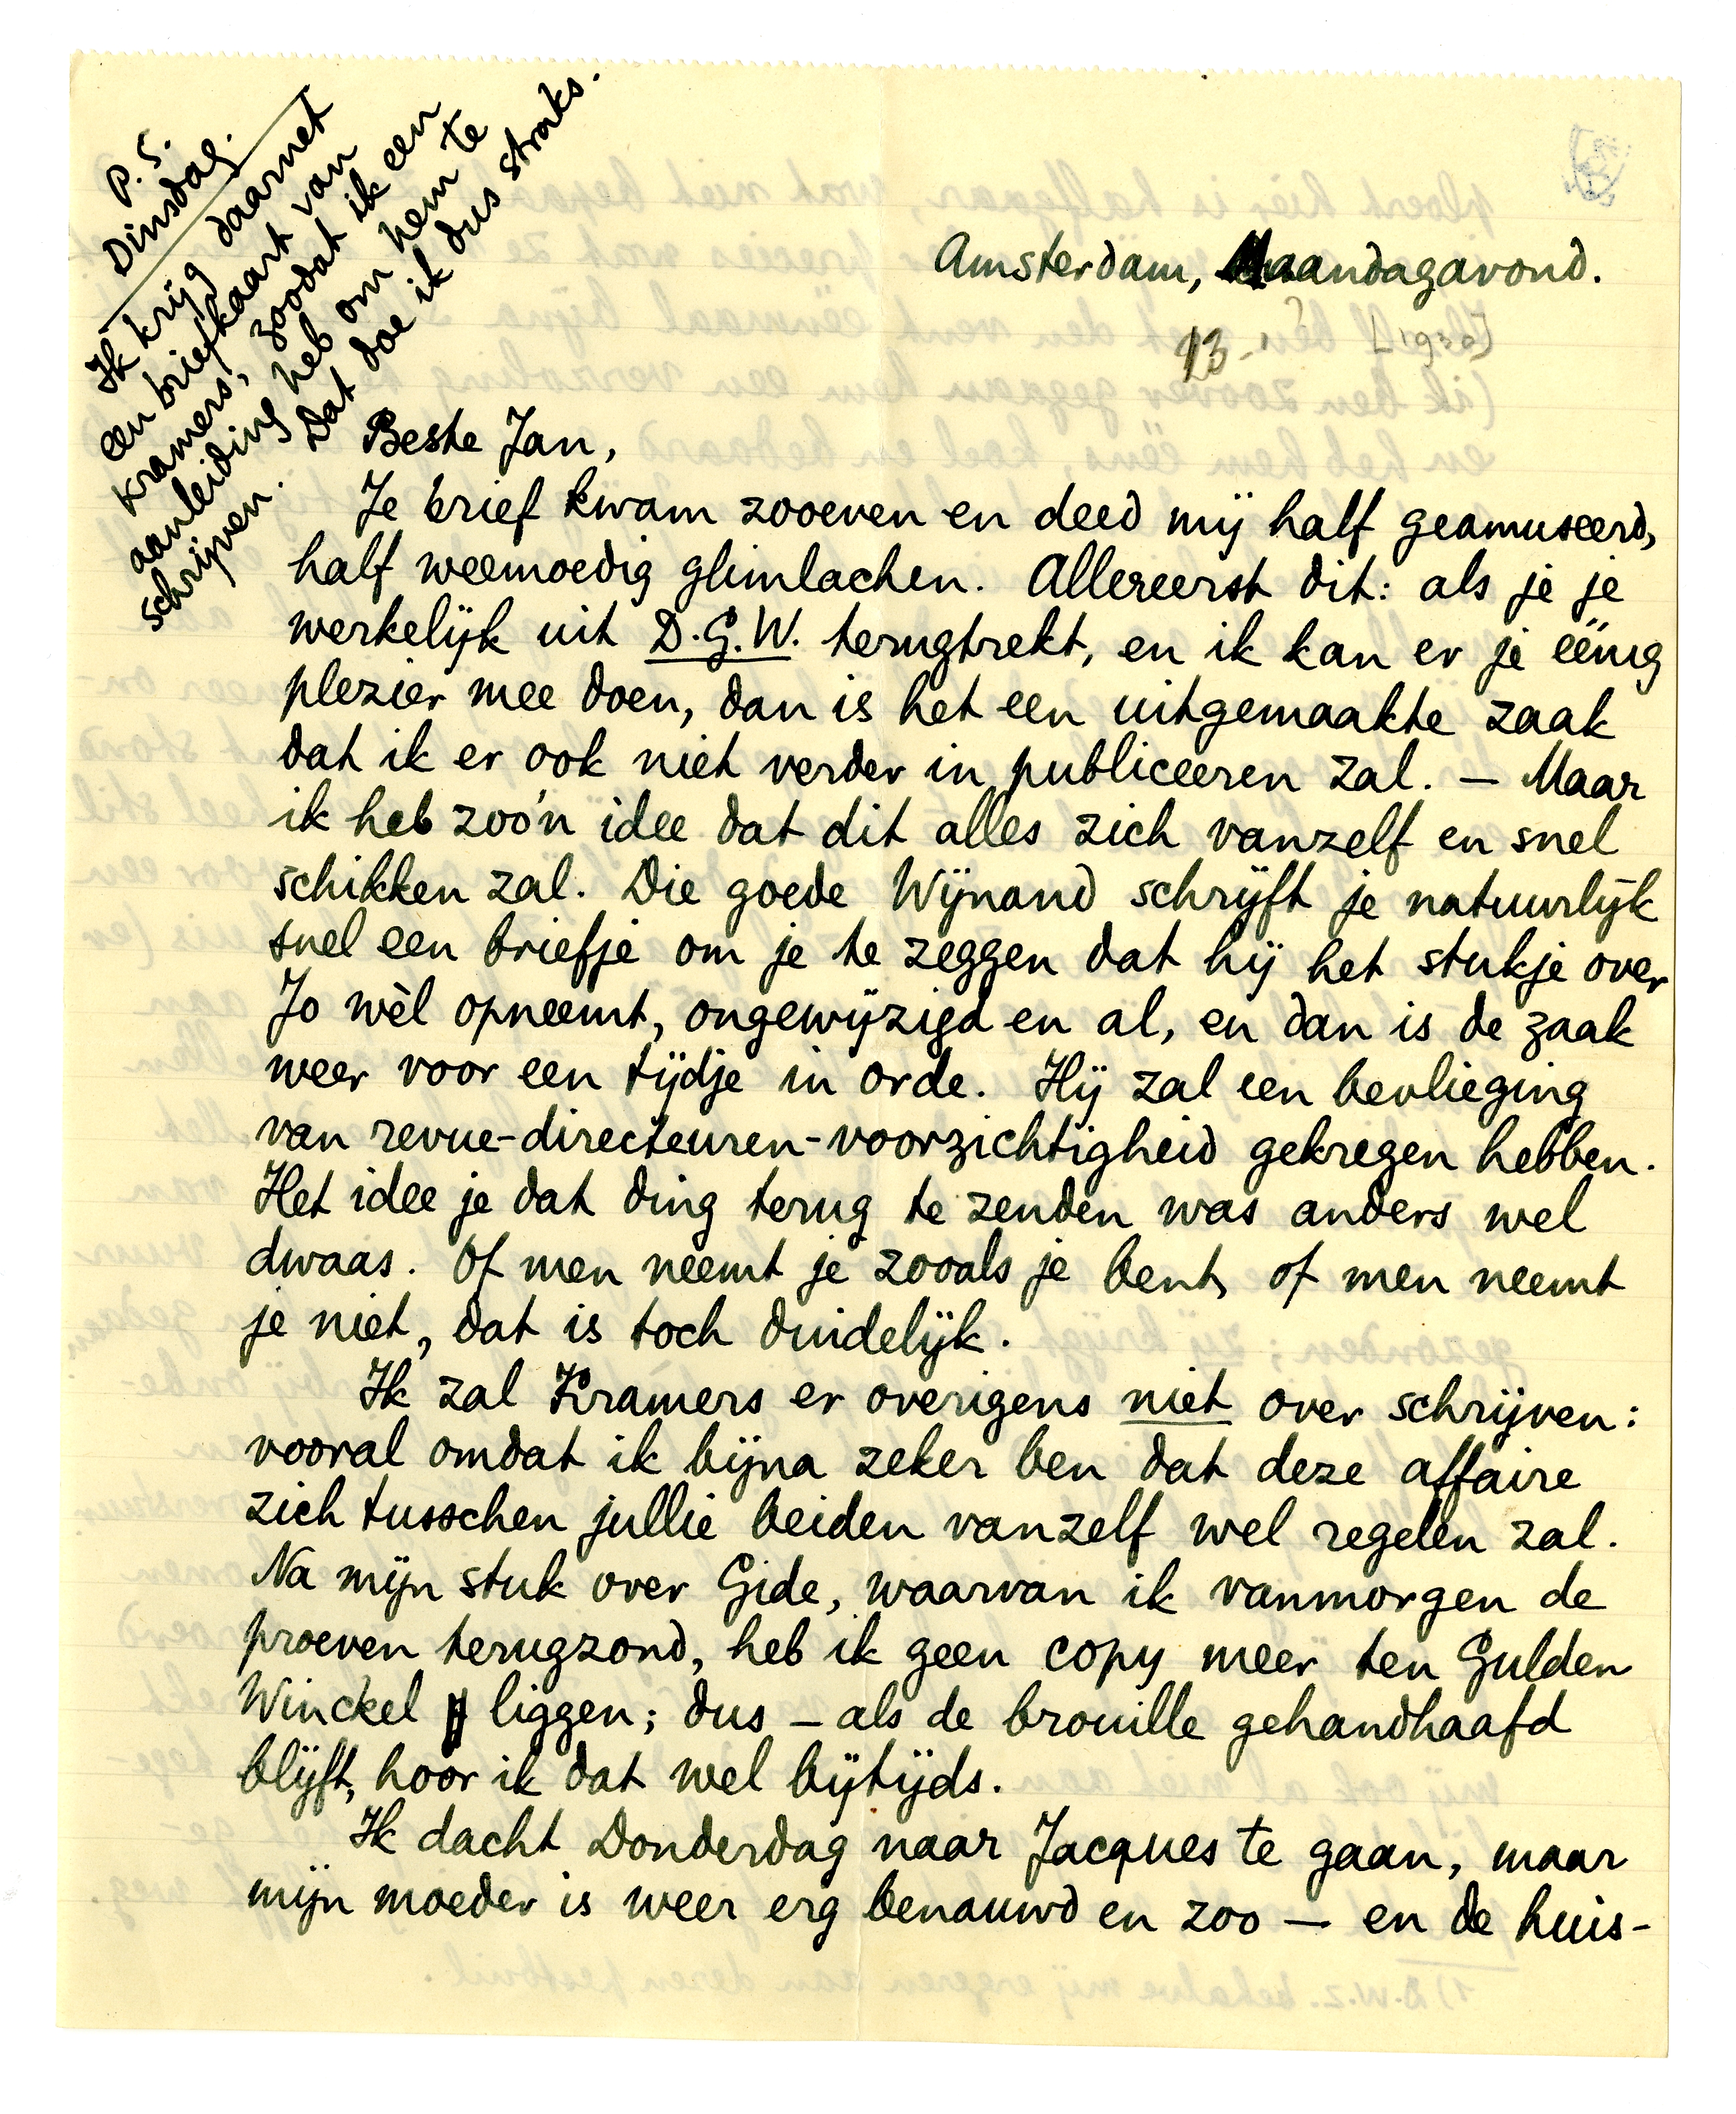 P.S.
Dinsdag.
Ik krijg daarnet
een briefkaart van
Kramers, zoodat ik een
aanleiding heb om hem te
schrijven. Dat doe ik dus straks.
Amsterdam, Maandagavond.
13-1 [1930]
Beste Jan,
Je brief kwam zooeven en deed mij half geamuseerd,
half weemoedig glimlachen. Allereerst dit: als je je
werkelijk uit D.G.W. terugtrekt, en ik kan er je eenig
plezier mee doen, dan is het een uitgemaakte zaak
dat ik er ook niet verder in publiceeren zal. — Maar
ik heb zoo'n idee dat dit alles zich vanzelf en snel
schikken zal. Die goede Wijnand schrijft je natuurlijk
snel een briefje om je te zeggen dat hij het stukje over
Jo wèl opneemt, ongewijzigd en al, en dan is de zaak
weer voor een tijdje in orde. Hij zal een bevlieging
van revue-directeuren-voorzichtigheid gekregen hebben.
Het idee je dat ding terug te zenden was anders wel
dwaas. Of men neemt je zooals je bent, of men neemt
je niet, dat is toch duidelijk.
Ik zal Kramers er overigens niet over schrijven:
vooral omdat ik bijna zeker ben dat deze affaire
zich tusschen jullie beiden vanzelf wel regelen zal.
Na mijn stuk over Gide, waarvan ik vanmorgen de
proeven terugzond, heb ik geen copy meer ten Gulden
Winckel liggen; dus — als de brouille gehandhaafd
blijft, hoor ik dat wel bijtijds.
Ik dacht Donderdag naar Jacques te gaan, maar
mijn moeder is weer erg benauwd en zoo — en de huis-